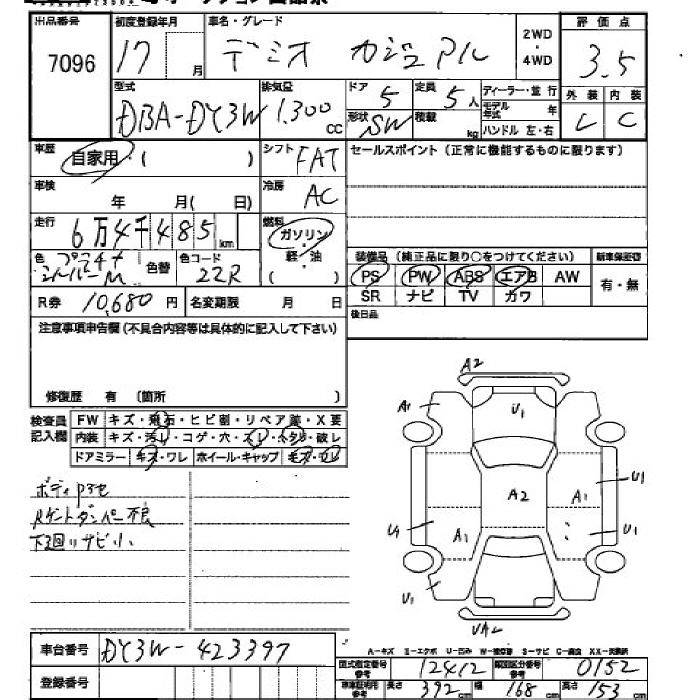 出品番号 初度登録年月 車名・グレード 2WD・4WD 評価点
7096 17 月 デミオ カジュアル 3.5
型式 排気量 ドア 定員 ディーラー・並行 外装 内装
DBA-DY3W 1.300 cc 5 5人 モデル年式 年 C C
形状 SW 積載 kg ハンドル 左・右
車歴 自家用・( ) シフト FAT セールスポイント(正常に機能するものに限ります)
車検 年 月( 日) 冷房 AC
走行 6万4千485km 燃料 ガソリン・軽・油 ( )
色 シルバーM 色替 色コード 22R
装備品(純正品に限り○をつけてください) 新車保証書
PS PW ABS エアB AW 有・無
SR ナビ TV カワ
R券 10,680円 名変期限 月 日 後日品
注意事項申告欄(不具合内容等は具体的に記入して下さい)
修復歴 有 〔箇所 〕
検査員記入欄 FW キズ・飛石・ヒビ割・リペア跡・X要
内装 キズ・汚レ・コゲ・穴・スレ・ヘタリ・破レ
ドアミラー キズ・ワレ ホイール・キャップ キズ・ワレ
A2
A1 U1
U1
A2 A1
U1 A1 U1
U1
UA2
ボディ
Rゲートダンパー不良
下廻リサビ小
車台番号 DY3W-423397
登録番号
A-キズ E-エクボ U-凹み W-補修跡 S-サビ C-腐食 XX-交換済
型式指定番号 参考 12412 類別区分番号 参考 0152
車庫証明用 参考 長さ 392cm 幅 168cm 高さ 153cm